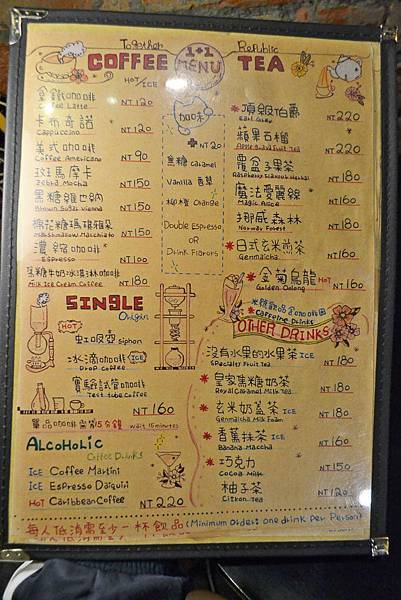 Together 1+1 Republic
COFFEE MENU TEA
HOT/ICE
拿鐵咖啡
Coffee Latte NT 120
卡布奇諾
Cappuccino NT 120
美式咖啡
Coffee Americano NT 90
斑馬摩卡
Zebra Mocha NT 150
黑糖維也納
Brown Sugar Vienna NT 150
棉花糖瑪琪雅朵
Marshmallow Macchiato NT 150
濃縮咖啡
Espresso NT 100
黑糖牛奶冰淇淋咖啡
Milk Ice Cream Coffee NT 180
加味
NT 20
黑糖 Caramel
Vanilla 香草
柳橙 Orange
Double Espresso
OR
Drink Flavors
頂級伯爵
Earl Grey NT 220
蘋果石榴
NT 220
覆盆子果茶
Raspberry Flavour Herbal NT 180
魔法愛麗絲
Magic Alice NT 160
挪威森林
Norway Forest NT 180
日式玄米煎茶
Genmaicha NT 160
金菊烏龍 HOT
Golden Oolong NT 160
SINGLE
Origin
HOT
虹吸壺 Siphon
冰滴咖啡 ICE
Drop Coffee
賽風試管咖啡
Test tube Coffee
NT 160
單品咖啡需等15分鐘 wait 15 minutes
Caffeine Drinks
OTHER DRINKS
沒有水果的水果茶 ICE
Specialty Fruit Tea NT 180
皇家焦糖奶茶
Royal Caramel Milk Tea NT 180
玄米奶蓋茶 ICE
Genmaicha Milk Foam NT 180
香蕉抹茶 ICE
Banana Maccha NT 160
巧克力
Cocoa Milk NT 150
柚子茶
Citron Tea NT 120
ALCOHOLIC
Coffee Drinks
ICE Coffee Martini
ICE Espresso Daiquiri
HOT Caribbean Coffee NT 220
每人低消需至少一杯飲品 (Minimum Order: one drink per Person)